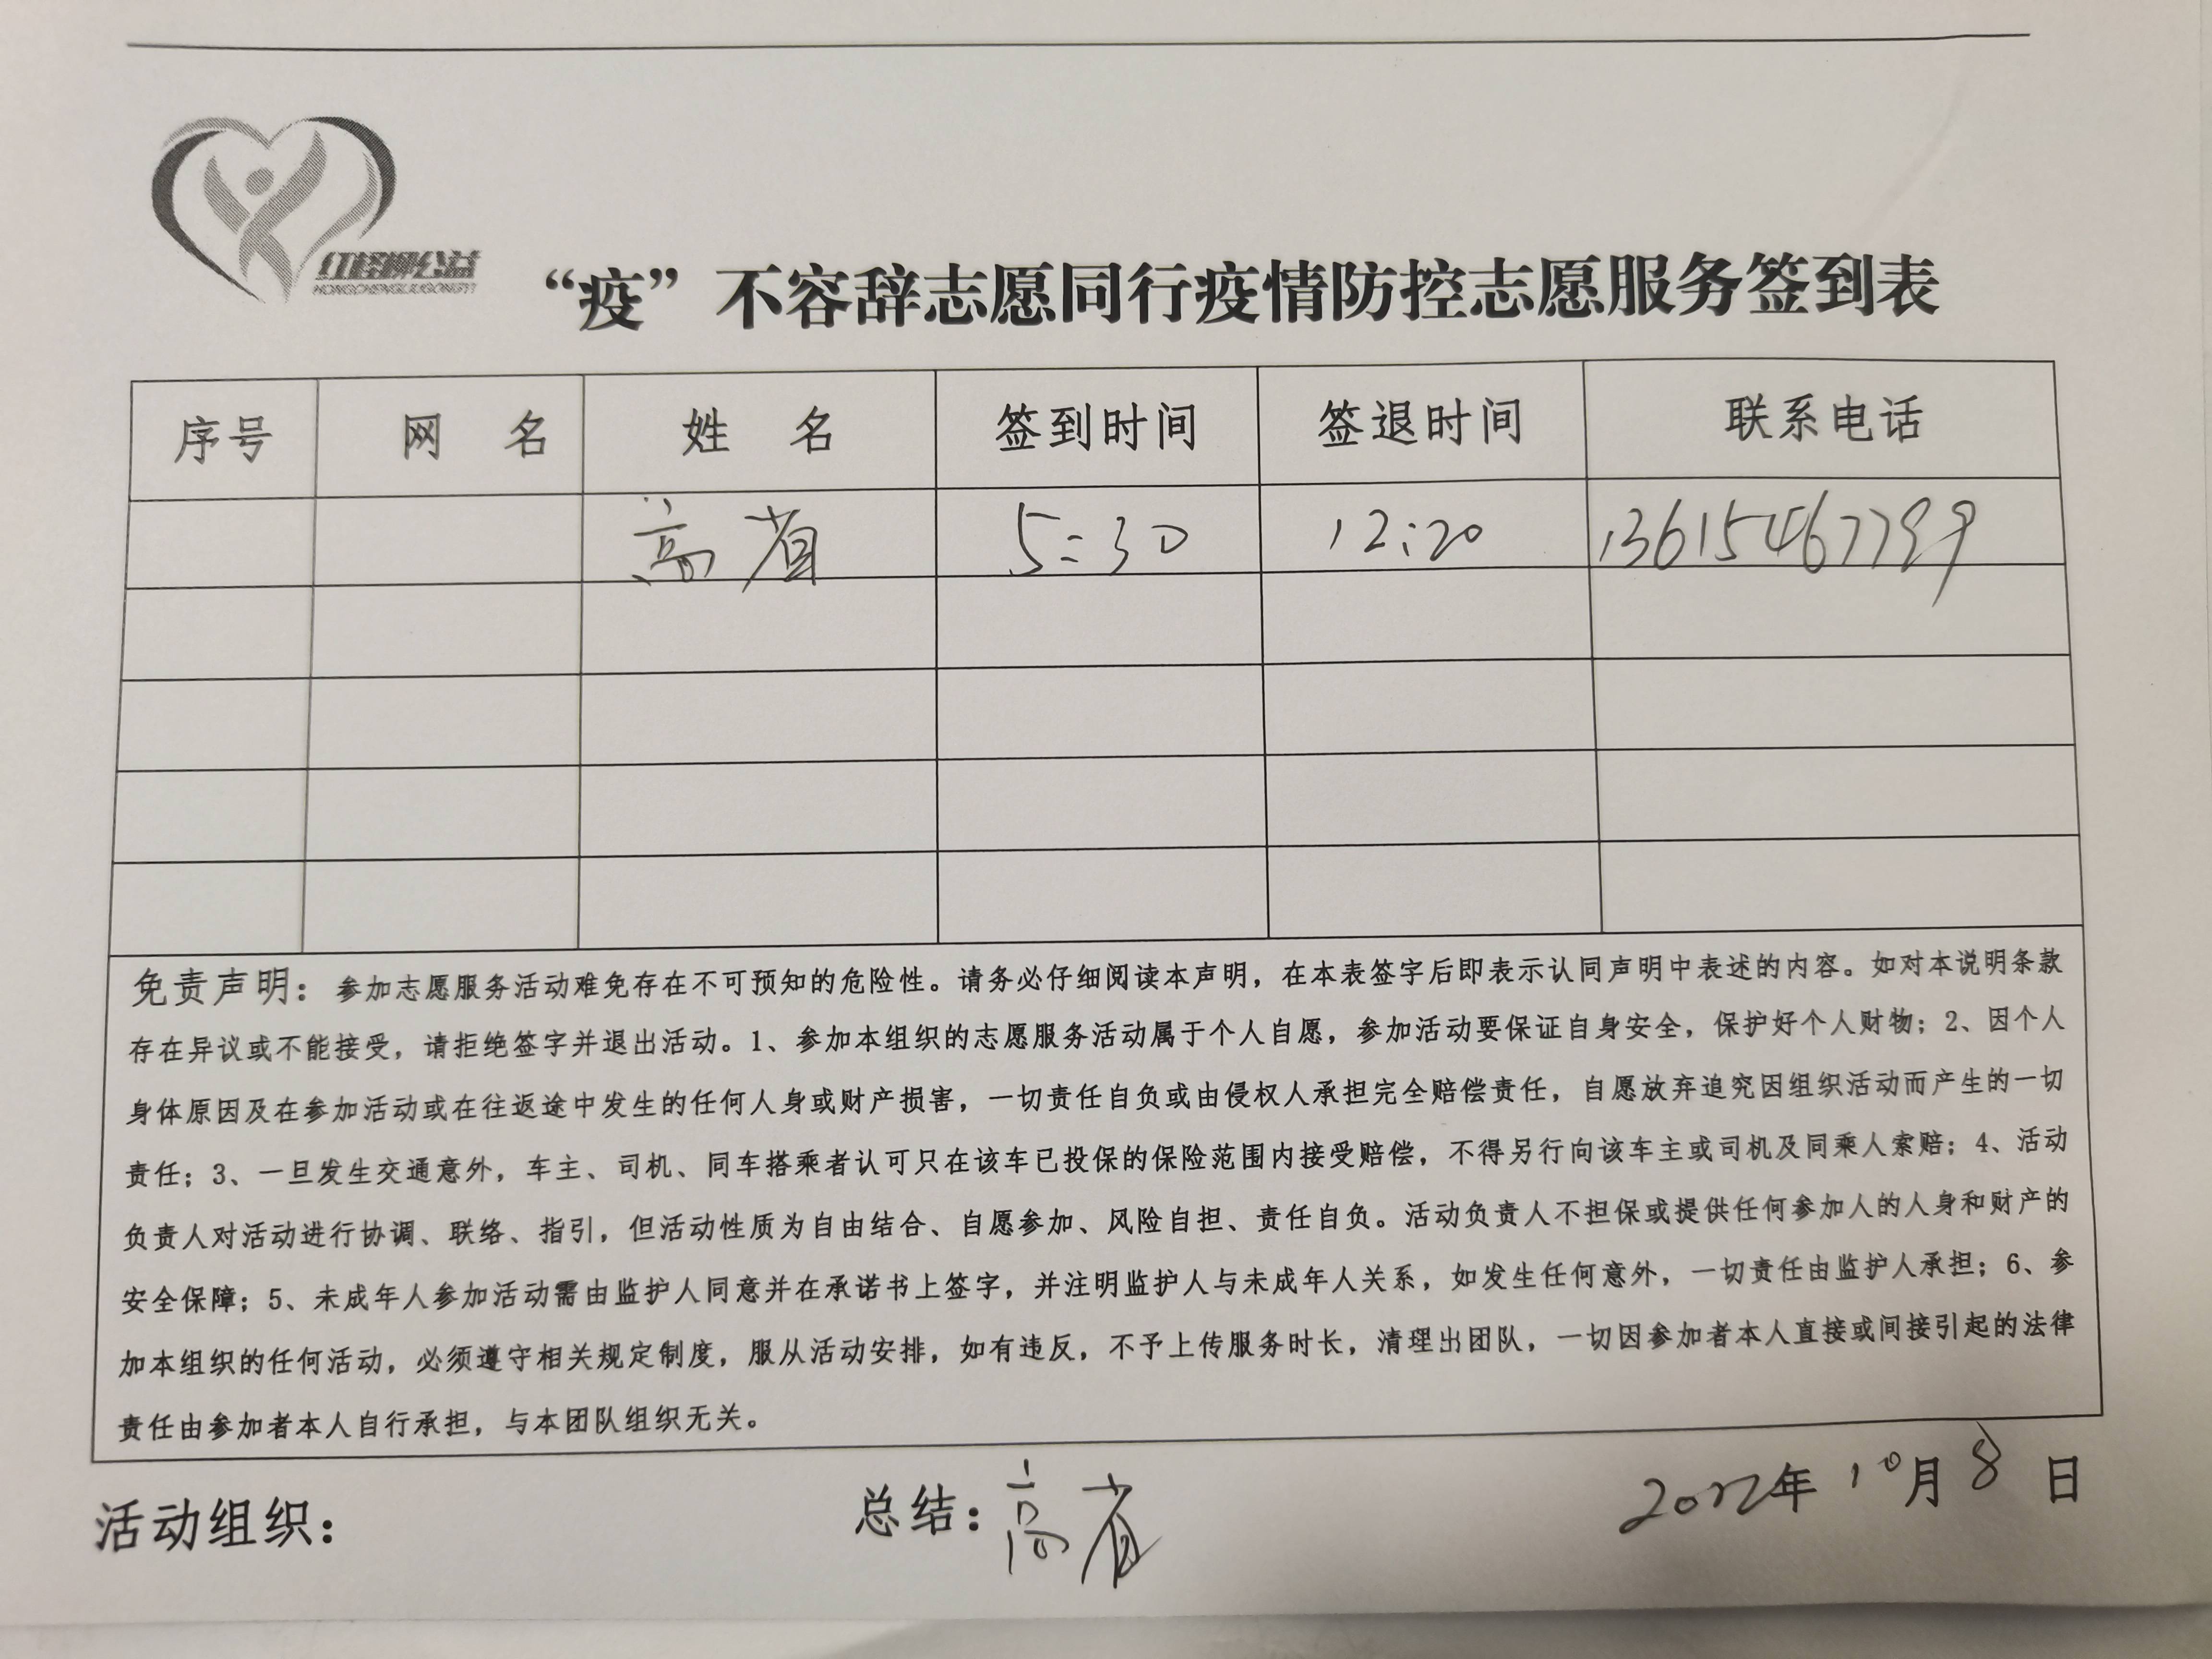 红柽柳公益
HONGCHENGLIUGONGYI
“疫”不容辞志愿同行疫情防控志愿服务签到表
序号 网 名 姓 名 签到时间 签退时间 联系电话
高省 5:30 12:20 13615467799
免责声明：参加志愿服务活动难免存在不可预知的危险性。请务必仔细阅读本声明，在本表签字后即表示认同声明中表述的内容。如对本说明条款
存在异议或不能接受，请拒绝签字并退出活动。1、参加本组织的志愿服务活动属于个人自愿，参加活动要保证自身安全，保护好个人财物；2、因个人
身体原因及在参加活动或在往返途中发生的任何人身或财产损害，一切责任自负或由侵权人承担完全赔偿责任，自愿放弃追究因组织活动而产生的一切
责任；3、一旦发生交通意外，车主、司机、同车搭乘者认可只在该车已投保的保险范围内接受赔偿，不得另行向该车主或司机及同乘人索赔；4、活动
负责人对活动进行协调、联络、指引，但活动性质为自由结合、自愿参加、风险自担、责任自负。活动负责人不担保或提供任何参加人的人身和财产的
安全保障；5、未成年人参加活动需由监护人同意并在承诺书上签字，并注明监护人与未成年人关系，如发生任何意外，一切责任由监护人承担；6、参
加本组织的任何活动，必须遵守相关规定制度，服从活动安排，如有违反，不予上传服务时长，清理出团队，一切因参加者本人直接或间接引起的法律
责任由参加者本人自行承担，与本团队组织无关。
活动组织： 总结：高省 2022年10月8日